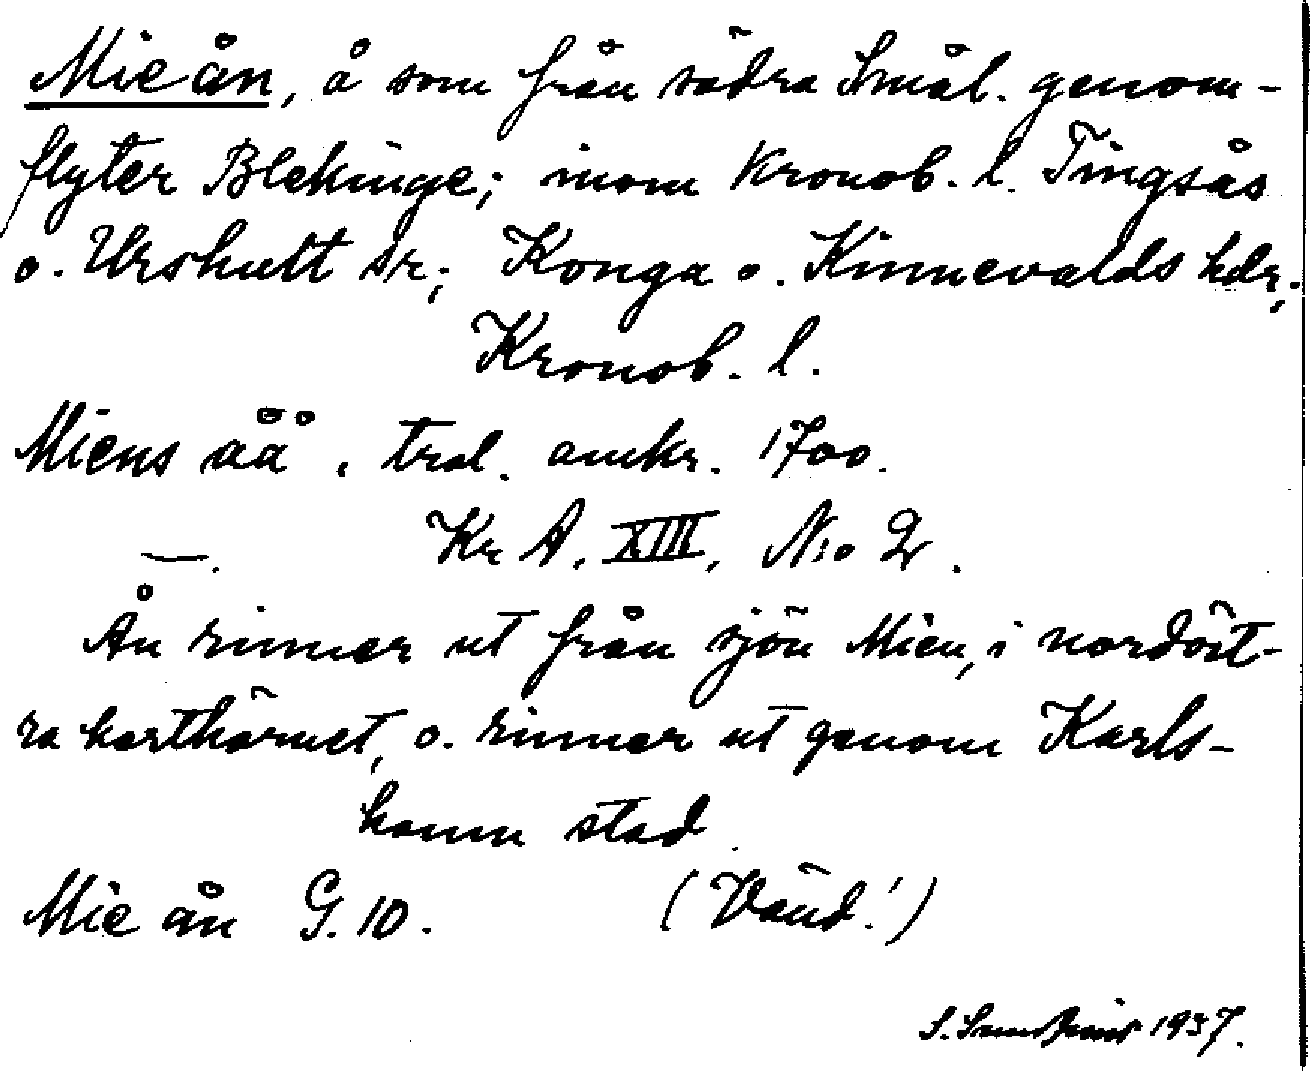 Mie ån, å som från södra Smål. genom-
flyter Blekinge; inom Kronob. l. Tingsås
o. Urshult sr; Konga o. Kinnevalds hdr;
Kronob. l.
Miens åå, trol. omkr. 1700.
—. Kr A. XIII, N:o 2.
Ån rinner ut från sjön Mien, i nordöst-
ra karthörnet, o. rinner ut genom Karls-
hamn stad
Mie ån G. 10. (Vänd!)
S. 1937.